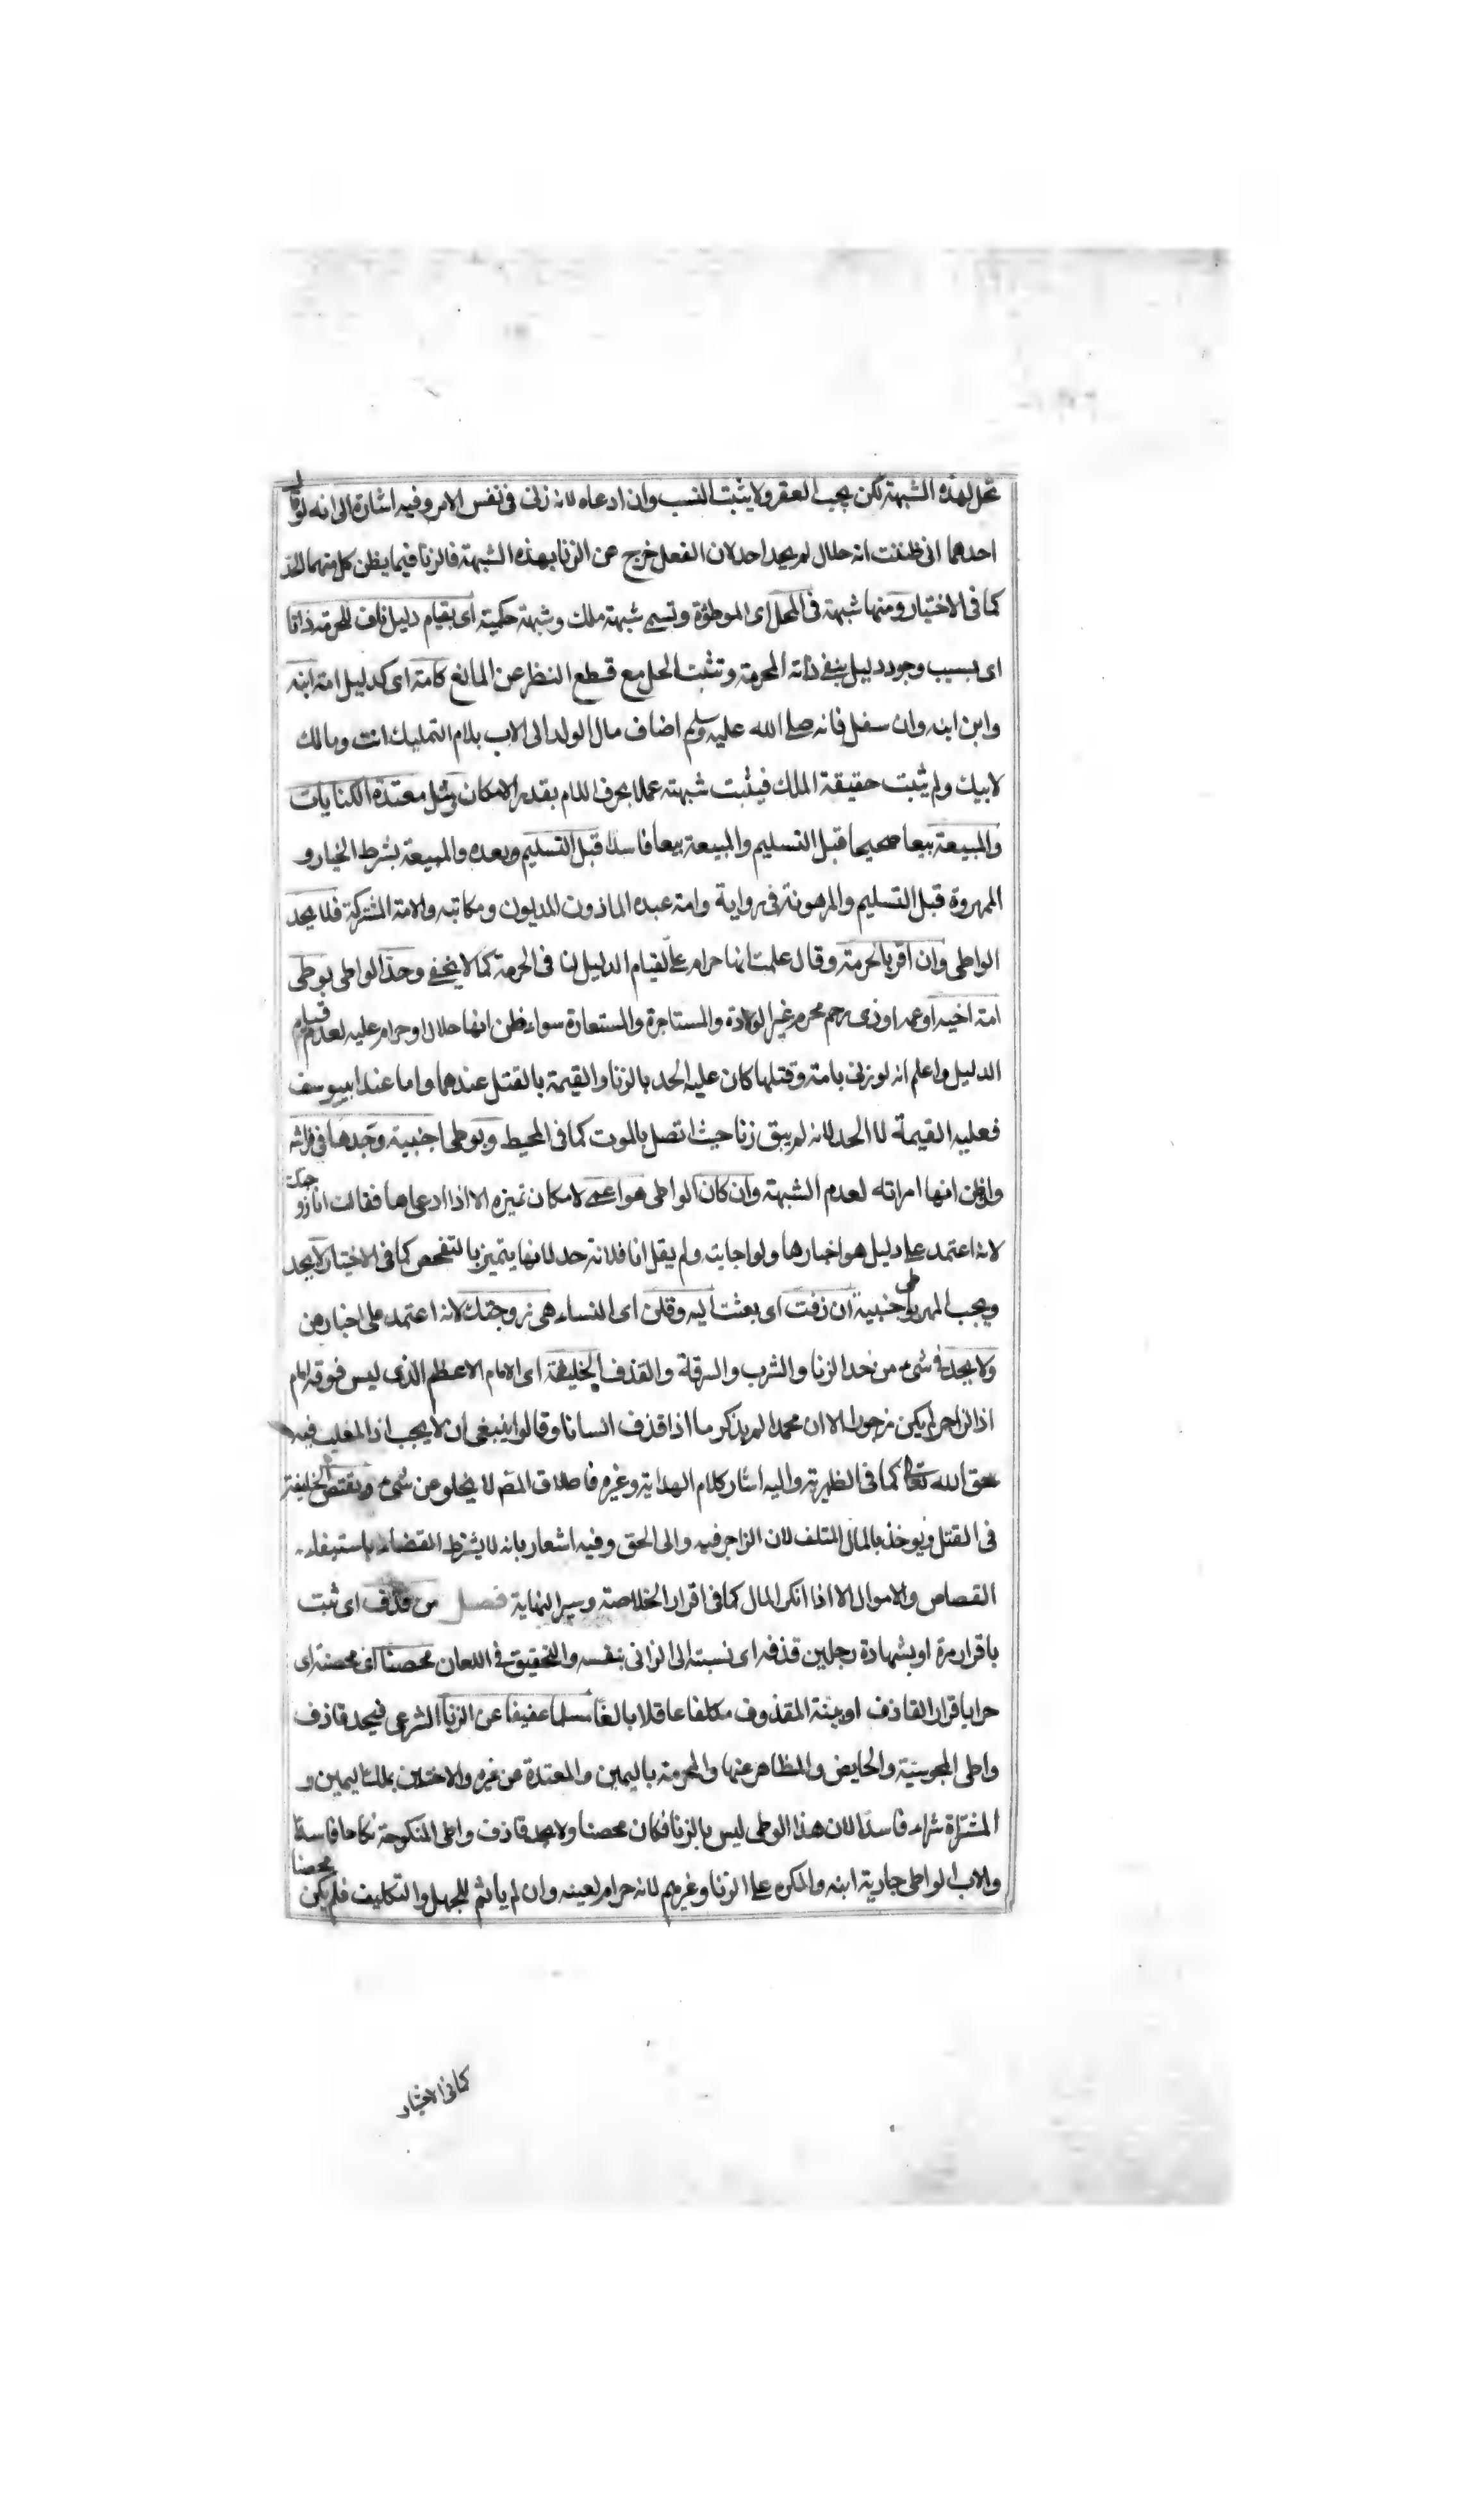 تحل لهذه الشبهة لكن يجب العقر ولا يثبت النسب وان ادعاه لانه زنى فى نفس الامر وفيه اشارة الى انه لو قال
احدهما انى ظننت انه حلال لم يحد احد لان الفعل خرج من الزنا بهذه الشبهة فالزنا فيما يظن كل منهما الحل
كما فى الاختيار ومنها شبهة فى المحل اى الموطؤة وتسمى شبهة ملك وشبهة حكمية اى بقيام دليل ناف للحرمة ذاتا
اى بسبب وجود دليل ينفى ذاته المحرمة وتثبت الحل مع قطع النظر عن المانع كامة اى كدليل امة ابنه
وابن ابنه وان سفل فانه صلى الله عليه وسلم اضاف مال الولد الى الاب بلام التمليك انت ومالك
لابيك ولم يثبت حقيقة الملك فيثبت شبهته عملا بحرف اللام بقدر الامكان ومثل معتدة الكنايات
والمبيعة بيعا صحيحا قبل التسليم والمبيعة بيعا فاسدا قبل التسليم وبعده والمبيعة بشرط الخيار و
الممهورة قبل التسليم والمرهونة فى رواية وامة عبده الماذون المديون ومكاتبه والامة المشتركة فلا يحد
الواطى وان اقر بالحرمة وقال علمت انها حرام على لقيام الدليل لنا فى الحرمة كما لا يخفى وحد الواطى بوطى
امة اخيه او عمه او ذى رحم محرم غير الولادة والمستاجرة والمستعارة سواء ظن انها حلال او حرام عليه لعدم قيام
الدليل واعلم انه لو زنى بامة وقتلها كان عليه الحد بالزنا والقيمة بالقتل عندهما واما عند ابى يوسف
فعليه القيمة لا الحد لانه لم يبق زنا حيث اتصل بالموت كما فى المحيط وبوطى اجنبية وجدها فى فراشه
وان ظن انها امراته لعدم الشبهة وان كان الواطى هو اعمى لامكان تميزه الا اذا ادعاها فقالت انا زوجتك
لانه اعتمد على دليل هو اخبارها ولو اجابت ولم يقل انا فلانة حد لانها يتميز بالتفحص كما فى الاختيار لا يحد
ويجب المهر بوطى اجنبية ان زفت اى بعثت اليه وقلن اى النساء هى زوجتك لانه اعتمد على اخبارهن
ولا يحد فى شىء من حد الزنا والشرب والسرقة والقذف الخليفة اى الامام الاعظم الذى ليس فوقه امام
اذ الزاجر لم يكن مزجورا الا ان محمدا لم يذكر ما اذا قذف انسانا وقالوا ينبغى ان لا يجب اذ المغلب فيه
حق الله تعالى كما فى الظهيرية واليه اشار كلام الهداية وغيره فاطلاق المتن لا يخلو عن شىء ويقتص الخليفة
فى القتل ويوخذ بالمال المتلف لان الزاجر فيه والى الحق وفيه اشعار بانه لا يشترط القضاء باستيفاء
القصاص والاموال الا اذا انكر المال كما فى اقرار الخلاصة وسير النهاية فصل من قذف اى ثبت
باقراره مرة او بشهادة رجلين قذفه اى نسبته الى الزانى بنفسه والتحقيق فى اللعان محصنا اى محصنة اى
حرا باقرار القاذف او ببينة المقذوف مكلفا عاقلا بالغا مسلما عفيفا عن الزنا الشرعى فيحد قاذف
واطى المجوسية والحايض والمظاهر عنها والمحرمة باليمين والمعتدة من غيره والاختين بملك اليمين و
المشتراة شراء فاسدا لان هذا الوطى ليس بالزنا فكان محصنا ولا يحد قاذف واطى المنكوحة نكاحا فاسدا
والاب الواطى جارية ابنه والمكره على الزنا وغيرهم لانه حرام لعينه وان لم ياثم للجهل والتكليف فلم يكن محصنا
كما فى الاختيار